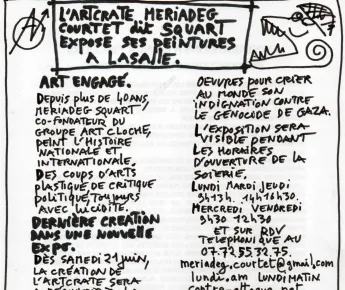 L'ARTCRATE MERIADEG
COURTET dit SQUART
EXPOSE SES PEINTURES
A LASALLE.
ART ENGAGÉ.
DEPUIS PLUS DE 40 ANS,
MERIADEG SQUART,
CO-FONDATEUR DU
GROUPE ART CLOCHE,
PEINT L'HISTOIRE
NATIONALE ET
INTERNATIONALE.
DES COUPS D'ARTS
PLASTIQUE DE CRITIQUE
POLITIQUE, TOUJOURS
AVEC LUCIDITÉ.
DERNIÈRE CREATION
DANS UNE NOUVELLE
EXPO.
DÈS SAMEDI 21 JUIN,
LA CRÉATION DE
L'ARTCRATE SERA
OEUVRES POUR CRIER
AU MONDE SON
INDIGNATION CONTRE
LE GENOCIDE DE GAZA.
L'EXPOSITION SERA
VISIBLE PENDANT
LES HORAIRES
D'OUVERTURE DE LA
SOIERIE.
LUNDI MARDI JEUDI
9H 13H. 14H 16H30.
MERCREDI VENDREDI
9H30 12H30
ET SUR RDV
TELEPHONIQUE AU
07.72.55.32.75.
meriadeg.courtet@gmail.com
lundi.am LUNDI MATIN
contre-attaque.net